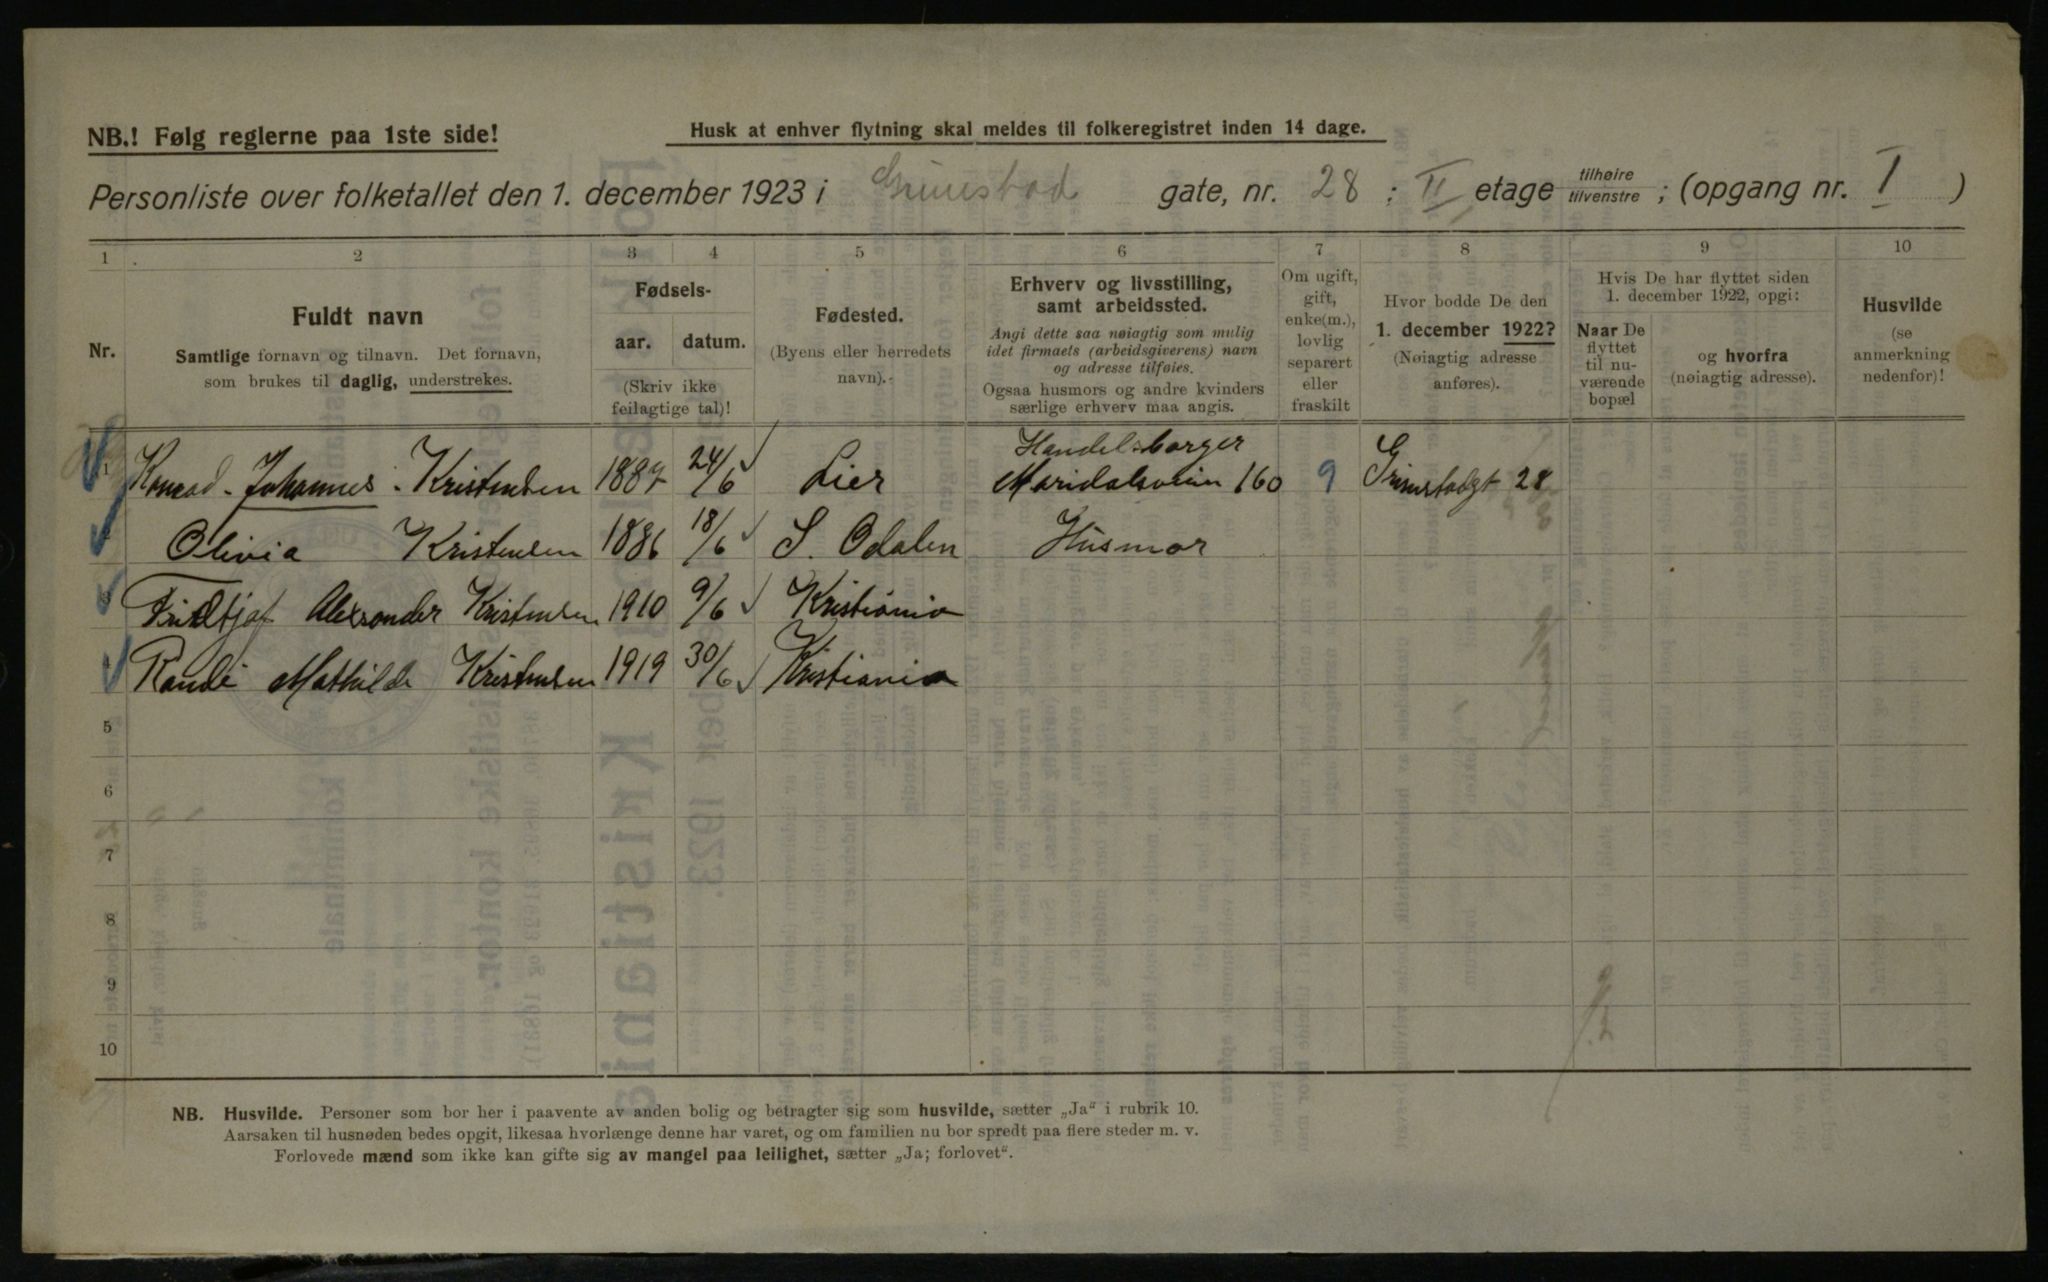 NB.! Følg reglerne paa 1ste side!
Husk at enhver flytning skal meldes til folkeregistret inden 14 dage.
Personliste over folketallet den 1. december 1923 i Grimstad gate, nr. 28 ; II etage tilhøire tilvenstre ; (opgang nr. I )
1 2 3 4 5 6 7 8 9 10
Nr.
Fuldt navn
Samtlige fornavn og tilnavn. Det fornavn,
som brukes til daglig, understrekes.
Fødsels-
aar. datum.
(Skriv ikke
feilagtige tal)!
Fødested.
(Byens eller herredets
navn).
Erhverv og livsstilling,
samt arbeidssted.
Angi dette saa nøiagtig som mulig
idet firmaets (arbeidsgiverens) navn
og adresse tilføies.
Ogsaa husmors og andre kvinders
særlige erhverv maa angis.
Om ugift,
gift,
enke(m.),
lovlig
separert
eller
fraskilt
Hvor bodde De den
1. december 1922?
(Nøiagtig adresse
anføres).
Hvis De har flyttet siden
1. december 1922, opgi:
Naar De
flyttet
til nu-
værende
bopæl
og hvorfra
(nøiagtig adresse).
Husvilde
(se
anmerkning
nedenfor)!
1 Konrad - Johannes - Kristensen 1887 24/6 Lier Handelsborger Maridalsveien 160 g Grimstadgt 28
2 Olivia Kristensen 1886 18/6 S. Odalen Husmor
3 Fridtjof Alexsander Kristensen 1910 9/6 Kristiania
4 Randi Mathilde Kristensen 1919 30/6 Kristiania
5
6
7
8
9
10
NB. Husvilde. Personer som bor her i paavente av anden bolig og betragter sig som husvilde, sætter „Ja“ i rubrik 10.
Aarsaken til husnøden bedes opgit, likesaa hvorlænge denne har varet, og om familien nu bor spredt paa flere steder m. v.
Forlovede mænd som ikke kan gifte sig av mangel paa leilighet, sætter „Ja; forlovet“.